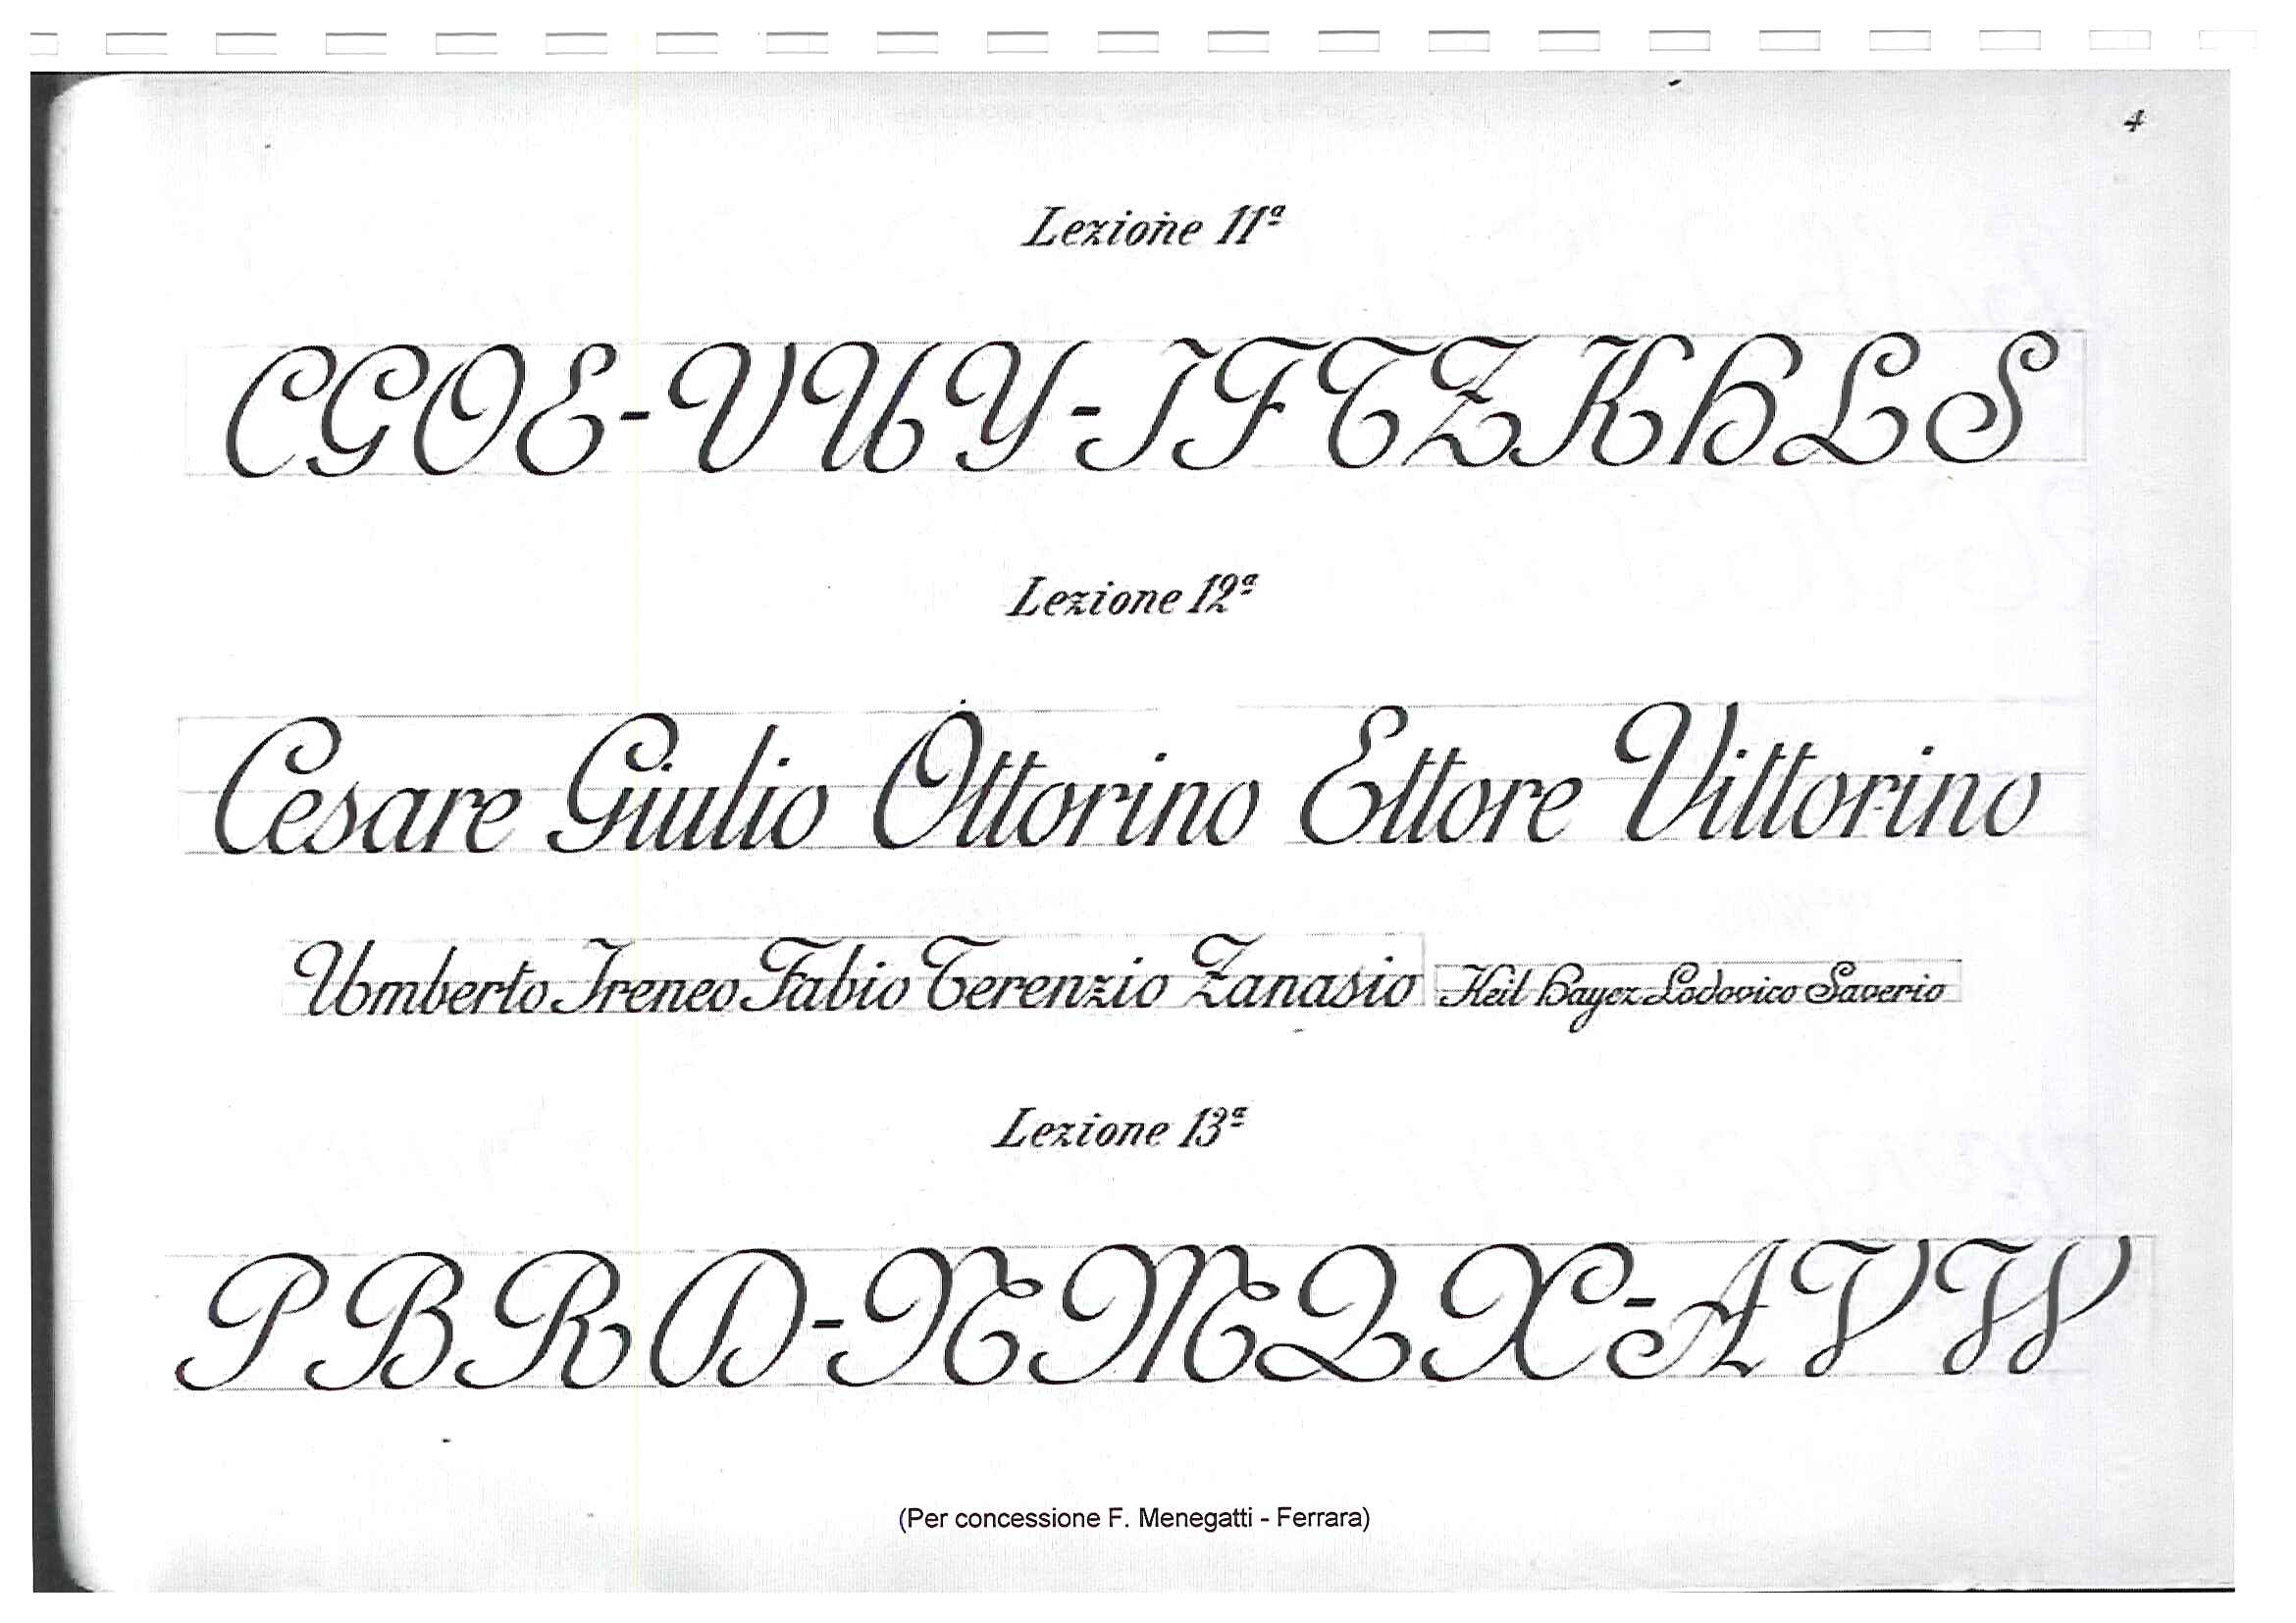 4
Lezione 11ª
C G O E - V U Y - I F T Z K H L S
Lezione 12ª
Cesare Giulio Ottorino Ettore Vittorino
Umberto Ireneo Fabio Terenzio Zanasio Keil Hayez Lodovico Saverio
Lezione 13ª
P B R D - N M Q X - A V W
(Per concessione F. Menegatti - Ferrara)